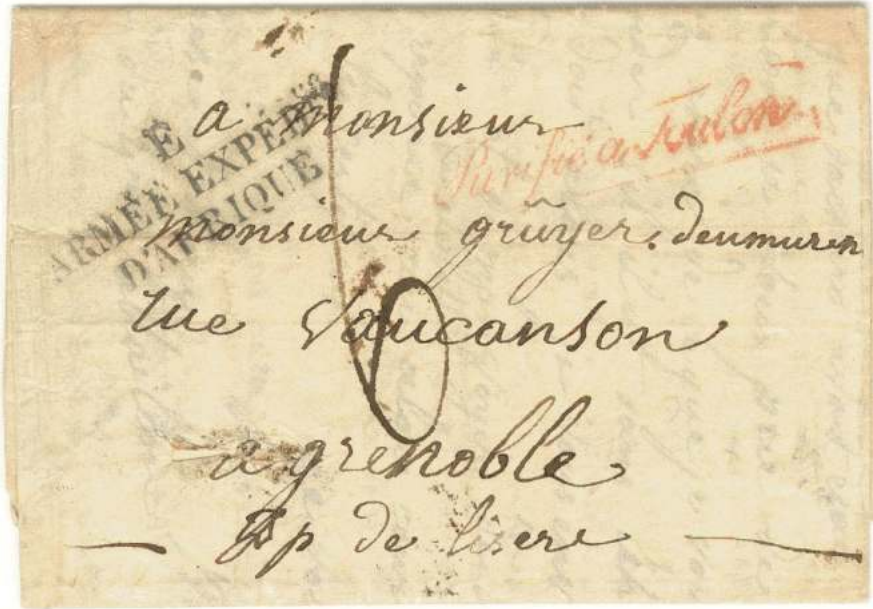 E
ARMÉE EXPÉD.re
D'AFRIQUE
Purifié a Toulon
a Monsieur
Monsieur grüyer. deumuren
rue Vaucanson
6
a grenoble
Dp de lisere